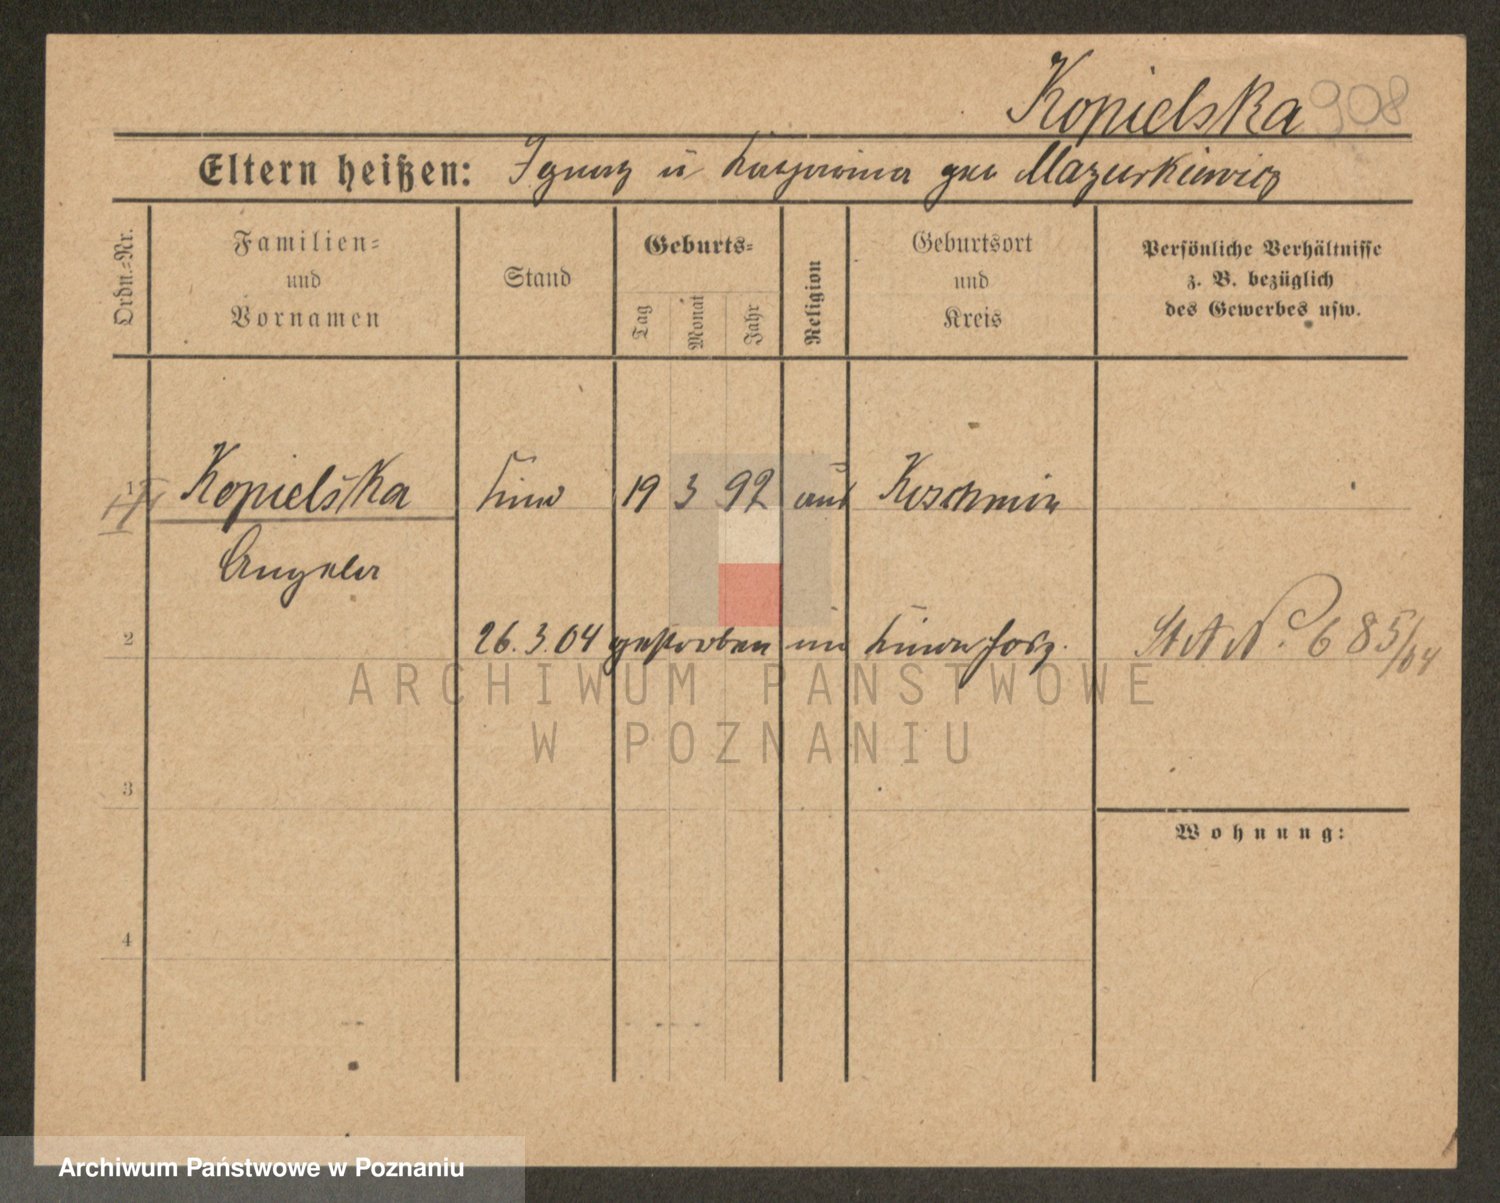 Kopielska 908
Eltern heißen: Ignatz u Katharina geb Mazurkiewicz
Ordn.=Nr.
Familien=
und
Vornamen
Stand
Geburts=
Tag
Monat
Jahr
Religion
Geburtsort
und
Kreis
Persönliche Verhältnisse
z. B. bezüglich
des Gewerbes usw.
1 Kopielska Kind 19 3 92 Koschmin
Angela
2 26.3.04 gestorben im Kinderhosp.
St A N° 685/04
3
Wohnung:
4
ARCHIWUM PAŃSTWOWE
W POZNANIU
Archiwum Państwowe w Poznaniu